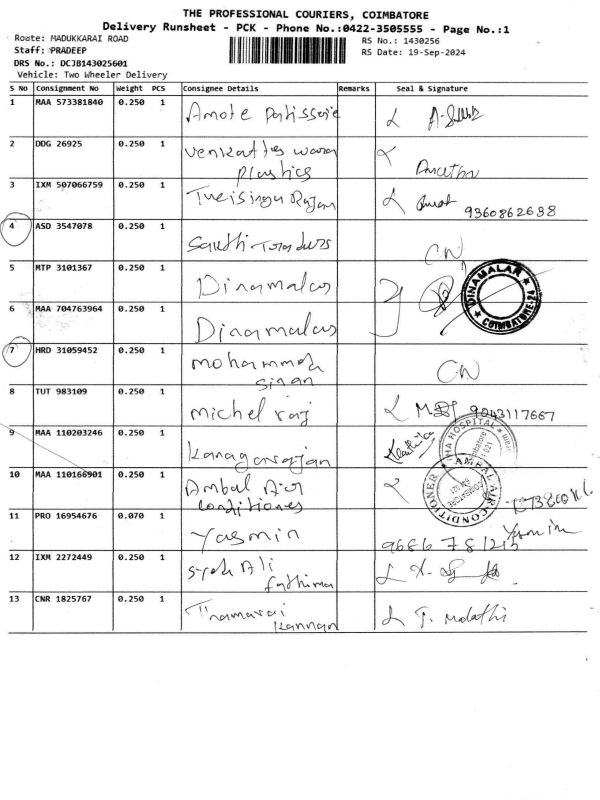 THE PROFESSIONAL COURIERS, COIMBATORE
Delivery Runsheet - PCK - Phone No.:0422-3505555 - Page No.:1
Route: MADUKKARAI ROAD
RS No.: 1430256
Staff: PRADEEP
RS Date: 19-Sep-2024
DRS No.: DCJB143025601
Vehicle: Two Wheeler Delivery
S No Consignment No Weight PCS Consignee Details Remarks Seal & Signature
1 MAA 573381840 0.250 1 Amote Patisserie
2 DDG 26925 0.250 1 plastics
3 IXM 507066759 0.250 1 Rajan 9360862638
4 ASD 3547078 0.250 1 CN
5 MTP 3101367 0.250 1 Dinamalar DINAMALAR COIMBATORE
6 MAA 704763964 0.250 1 Dinamalar
7 HRD 31059452 0.250 1 mohammed sinan CN
8 TUT 983109 0.250 1 michel raj 9043117667
9 MAA 110203246 0.250 1 Kanagarajan HOSPITAL
10 MAA 110166901 0.250 1 Ambal Air conditioners AMBAL AIR CONDITIONER
11 PRO 16954676 0.070 1 Yasmin
12 IXM 2272449 0.250 1 Syed Ali fathima
13 CNR 1825767 0.250 1 Thamarai Kannan T. Malathi